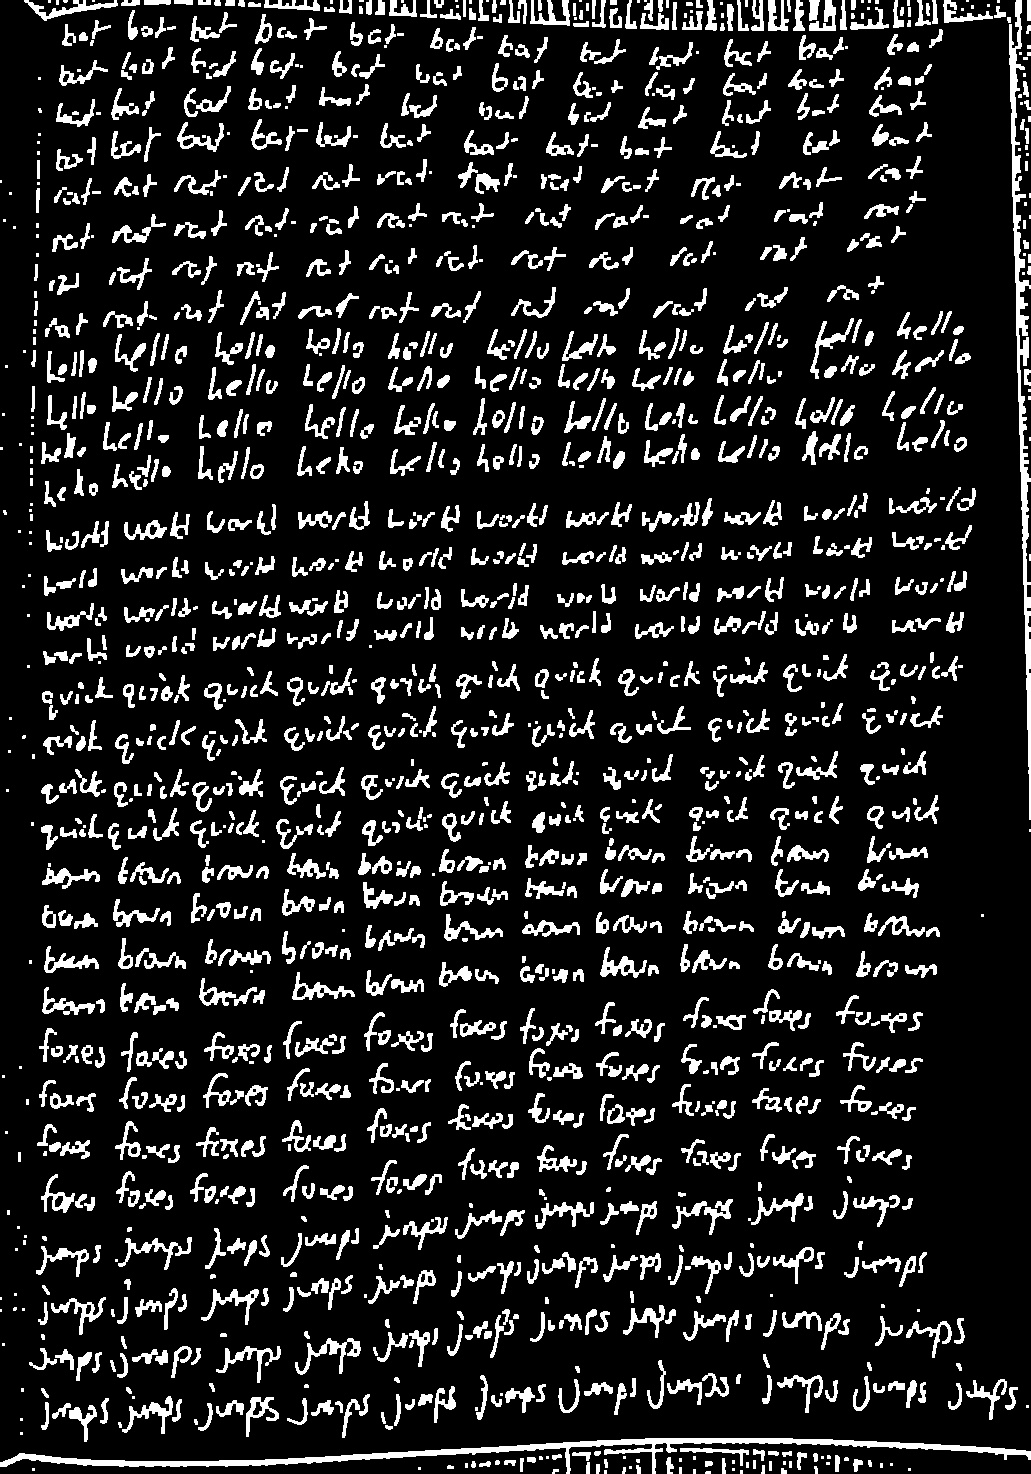 bat bat bat bat bat bat bat bat bat bat bat bat
bat bat bat bat bat bat bat bat bat bat bat bat
bat bat bat bat bat bat bat bat bat bat bat bat
bat bat bat bat bat bat bat bat bat bat bat bat
rat rat rat rat rat rat rat rat rat rat rat rat
rat rat rat rat rat rat rat rat rat rat rat rat
rat rat rat rat rat rat rat rat rat rat rat rat
rat rat rat rat rat rat rat rat rat rat rat rat
hello hello hello hello hello hello hello hello hello hello hello
hello hello hello hello hello hello hello hello hello hello hello
hello hello hello hello hello hello hello hello hello hello hello
hello hello hello hello hello hello hello hello hello hello hello
world world world world world world world world world world world
world world world world world world world world world world world
world world world world world world world world world world world
world world world world world world world world world world world
quick quick quick quick quick quick quick quick quick quick quick
quick quick quick quick quick quick quick quick quick quick quick
quick quick quick quick quick quick quick quick quick quick quick
quick quick quick quick quick quick quick quick quick quick quick
brown brown brown brown brown brown brown brown brown brown brown
brown brown brown brown brown brown brown brown brown brown brown
brown brown brown brown brown brown brown brown brown brown brown
brown brown brown brown brown brown brown brown brown brown brown
foxes foxes foxes foxes foxes foxes foxes foxes foxes foxes foxes
foxes foxes foxes foxes foxes foxes foxes foxes foxes foxes foxes
foxes foxes foxes foxes foxes foxes foxes foxes foxes foxes foxes
foxes foxes foxes foxes foxes foxes foxes foxes foxes foxes foxes
jumps jumps jumps jumps jumps jumps jumps jumps jumps jumps jumps
jumps jumps jumps jumps jumps jumps jumps jumps jumps jumps jumps
jumps jumps jumps jumps jumps jumps jumps jumps jumps jumps jumps
jumps jumps jumps jumps jumps jumps jumps jumps jumps jumps jumps